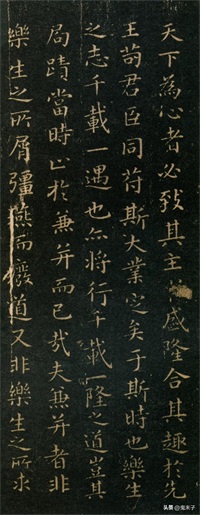 天下為心者必致其主盛隆合其趣於先
王苟君臣同符斯大業定矣于斯時也樂生
之志千載一遇也亦將行千載一隆之道豈其
局蹟當時止於兼并而已哉夫兼并者非
樂生之所屑彊燕而廢道又非樂生之所求
头条